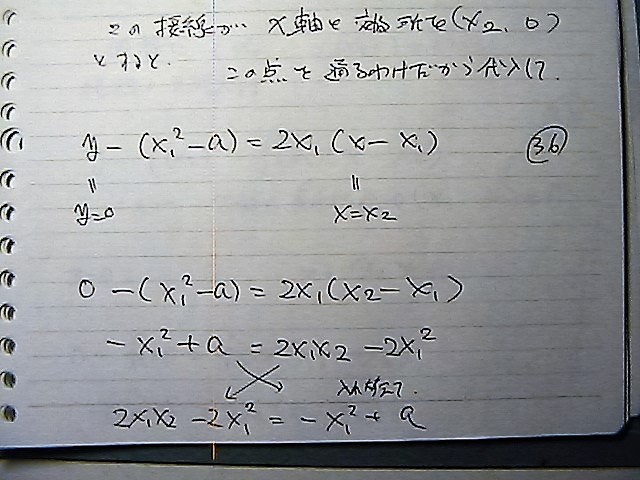 この接線が x軸と交わる所を(x₂, 0)
とすると.
この点を通るわけだから代入して.
y-(x₁²-a)=2x₁(x-x₁) ㊱
〃 〃
y=0 x=x₂
0-(x₁²-a)=2x₁(x₂-x₁)
-x₁²+a=2x₁x₂-2x₁²
入れかえて.
2x₁x₂-2x₁²=-x₁²+a